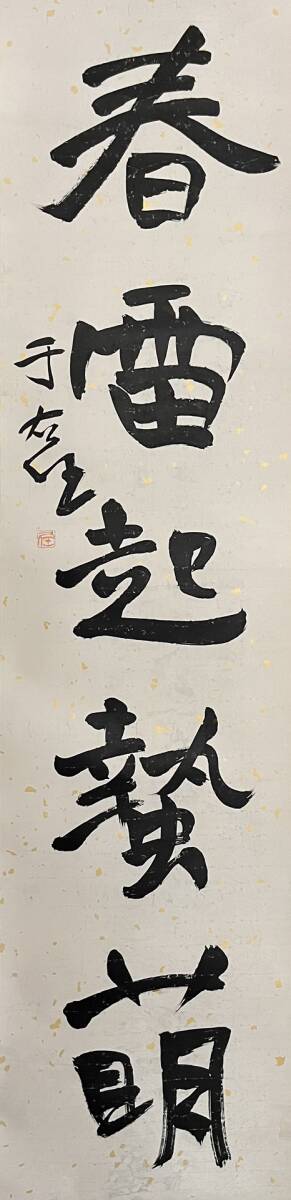 春雷起蟄萌
于右任